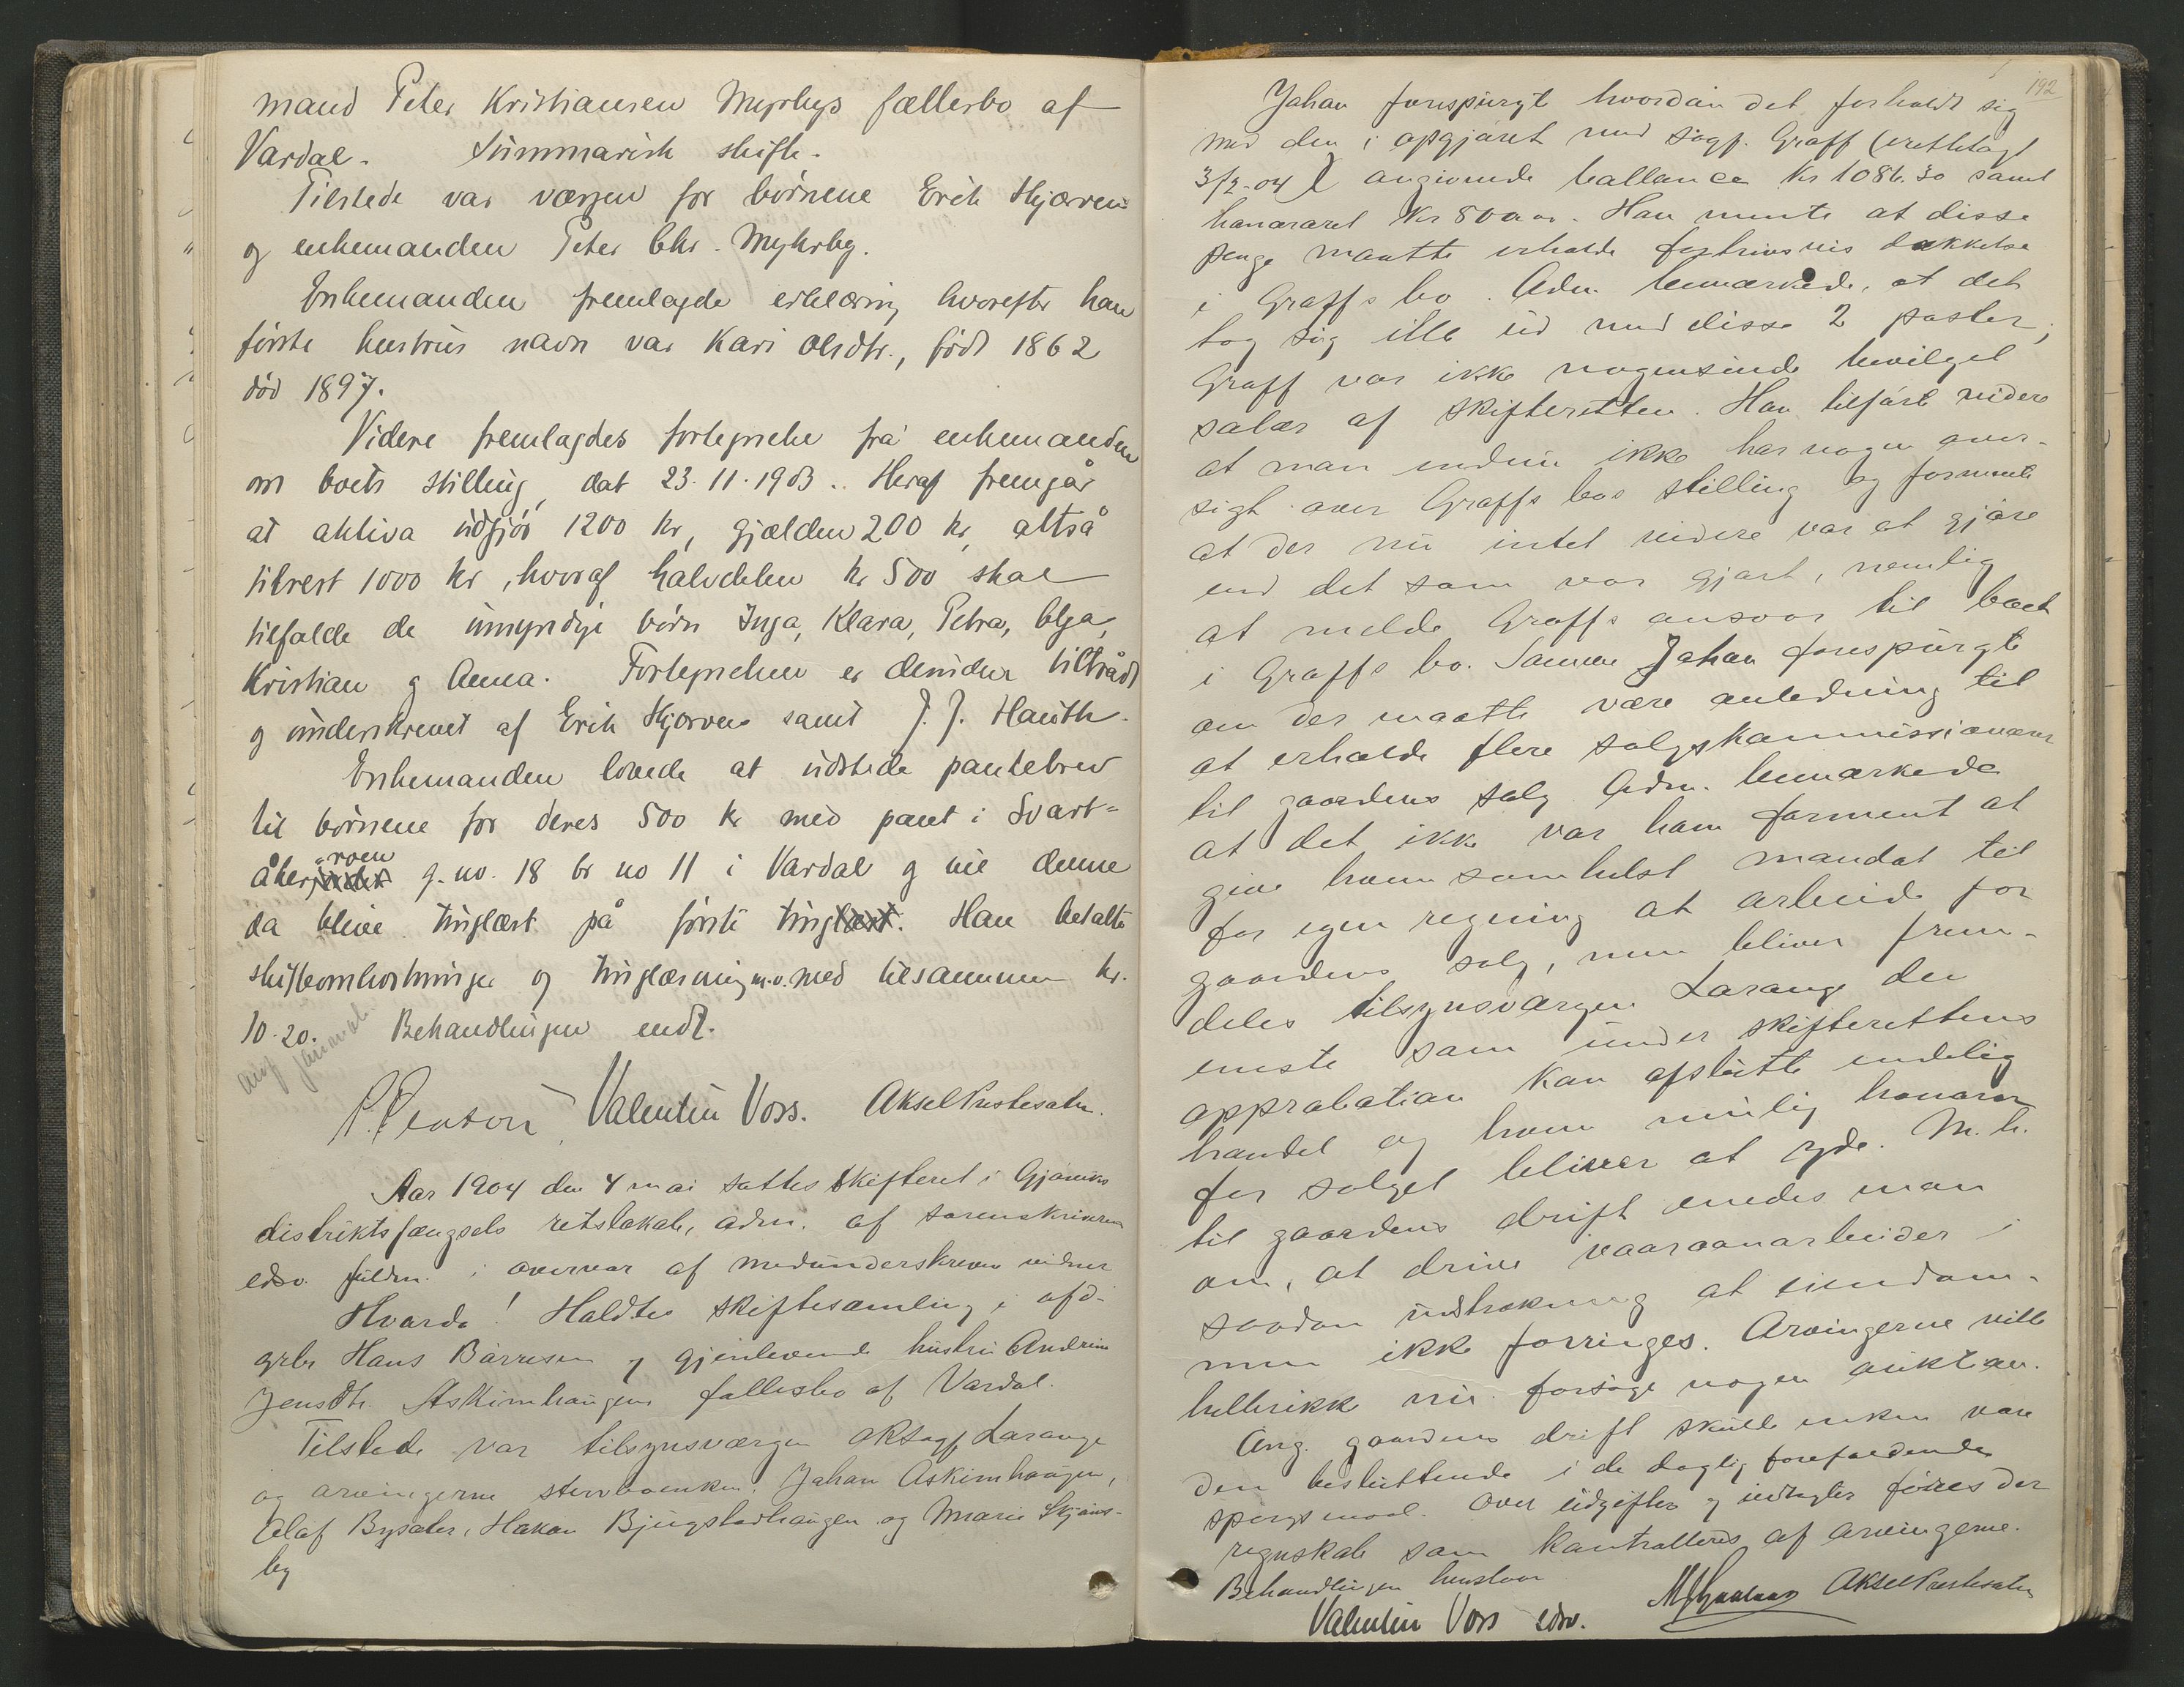 mand Peter Kristiansen Myrbys fællesbo af
Vardal. Summarisk skifte.
Tilstede var værgen for børnene Erik Skjerven
og enkemanden Peter Chr. Myhrby.
Enkemanden fremlagde erklæring, hvorefter hans
første hustrus navn var Kari Olsdtr., født 1862
død 1897.
Videre fremlagdes fortegnelse fra enkemanden
om boets stilling, dat 23.11.1903. Heraf fremgår
at aktiva udgjør 1200 kr, gjælden 200 kr, altså
tilrest 1000 kr, hvoraf halvdelen kr 500 skal
tilfalde de umyndige børn Inga, Klara, Petra, Olga,
Kristian og Anna. Fortegnelsen er desuden tiltrådt
og underskrevet af Erik Skjerven samt J. J. Hauth.
Enkemanden lovede at udstede pantebrev
til børnene for deres 500 kr med pant i Svart-
åkerroen g. no. 18 br no 11 i Vardal og vil denne
da blive tinglæst på første ting. Han betalte
skifteomkostninger og tinglæsning m.v. med tilsammen kr.
10.20. Behandlingen endt.
Valentin Voss. Aksel Prestesæter.
Aar 1904 den 4 mai sattes skifteret i Gjøviks
distriktsfængsels retslokale, adm. af sorenskriveren
edsv. fuldm. i overvær af medunderskrevne vidner
Hvorda! Holdtes skiftesamling i afd.
grbr Hans Børresen og gjenlevende hustru Andrine
Jensdtr. Askimhaugens fællesbo af Vardal.
Tilstede var tilsynsværgen oksagf. Lorange
og arvingerne stervboenken, Johan Askimhaugen,
Olaf Bysæter, Hakon Bjugstadhaugen og Marie Skjøns-
by
192
Johan forespurgte hvordan det forholdt sig
med den i opgjøret med sagf. Graff (retstelagt
3/2-04) angivende ballance kr 1086.30 samt
honoraret kr 500.00. Han mente at disse
penge maatte erholde fortrinsvis dækkelse
i Graffs bo. Adm. bemærkede, at det
tog sig ille ud med disse 2 poster,
Graff var ikke nogensinde bevilget
salær af skifteretten. Han tilføiet videre
at man endnu ikke har nogen over-
sigt over Graffs bos stilling og formente
at der nu intet videre var at gjøre
end det som var gjort, nemlig
at melde Graffs ansvar til boet
i Graffs bo. Samme Johan forespurgte
om der maatte være anledning til
at erholde flere salgskommissionærer
til gaardens salg. Adm. bemærkede
at det ikke var ham forment at
give hvemsomhelst mandat til
for egen regning at arbeide for
gaardens salg, men bliver frem-
deles tilsynsværgen Lorange den
eneste som under skifterettens
approbation kan afslutte endelig
handel og hvem mulig honorar
for salget bliver at yde. M. h.
til gaardens drift enedes man
om, at drive vaaraanarbeider i
saadan udstrækning at eiendom-
men ikke forringes. Arvingerne vilde
hellerikke nu forsøge nogen auktion.
Ang. gaardens drift skulde enken være
den besluttende i de daglig forefaldende
spørgsmaal. Over udgifter og indtægter føres der
regnskab som kontrolleres af arvingerne.
Behandlingen henstaar
Valentin Voss edsv. Aksel Prestesæter